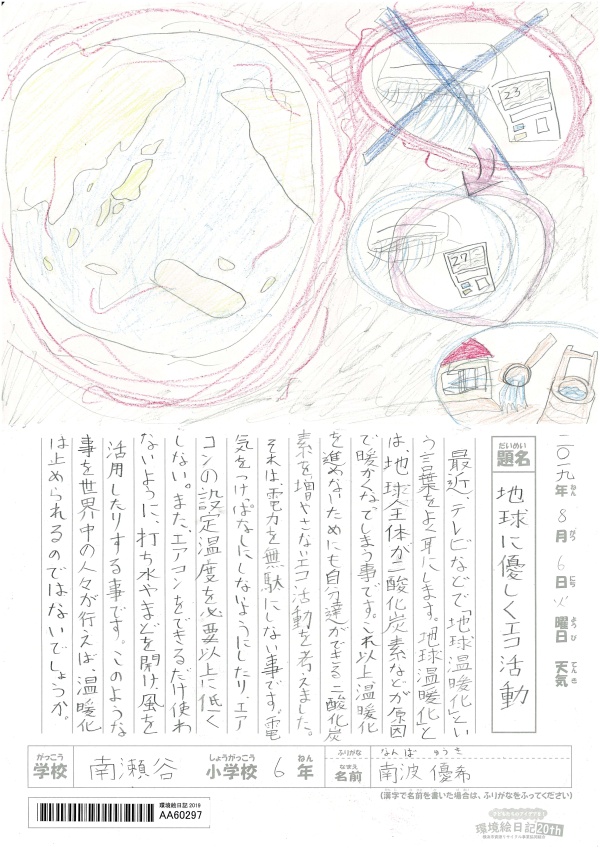 23
27
二〇一九年 8月 6日 火曜日 天気
ねん がつ にち ようび てんき
だいめい
題名
地球に優しくエコ活動
最近、テレビなどで「地球温暖化」とい
う言葉をよく耳にします。「地球温暖化」と
は、地球全体が二酸化炭素などが原因
で暖かくなてしまう事です。これ以上温暖化
を進めないためにも自分達ができる二酸化炭
素を増やさないエコ活動を考えました。
それは、電力を無駄にしない事です。電
気をつけぱなしにしないようにしたり、エア
コンの設定温度を必要以上に低く
しない。また、エアコンをできるだけ使わ
ないように、打ち水やまどを開け、風を
活用したりする事です。このような
事を世界中の人々が行えば、温暖化
は止められるのではないでしょうか。
がっこう
学校 南瀬谷
しょうがっこう
小学校 6
ねん
年
ふりがな なんば ゆうき
なまえ
名前 南波 優希
(漢字で名前を書いた場合は、ふりがなをふってください)
環境絵日記 2019
AA60297
環境絵日記20th